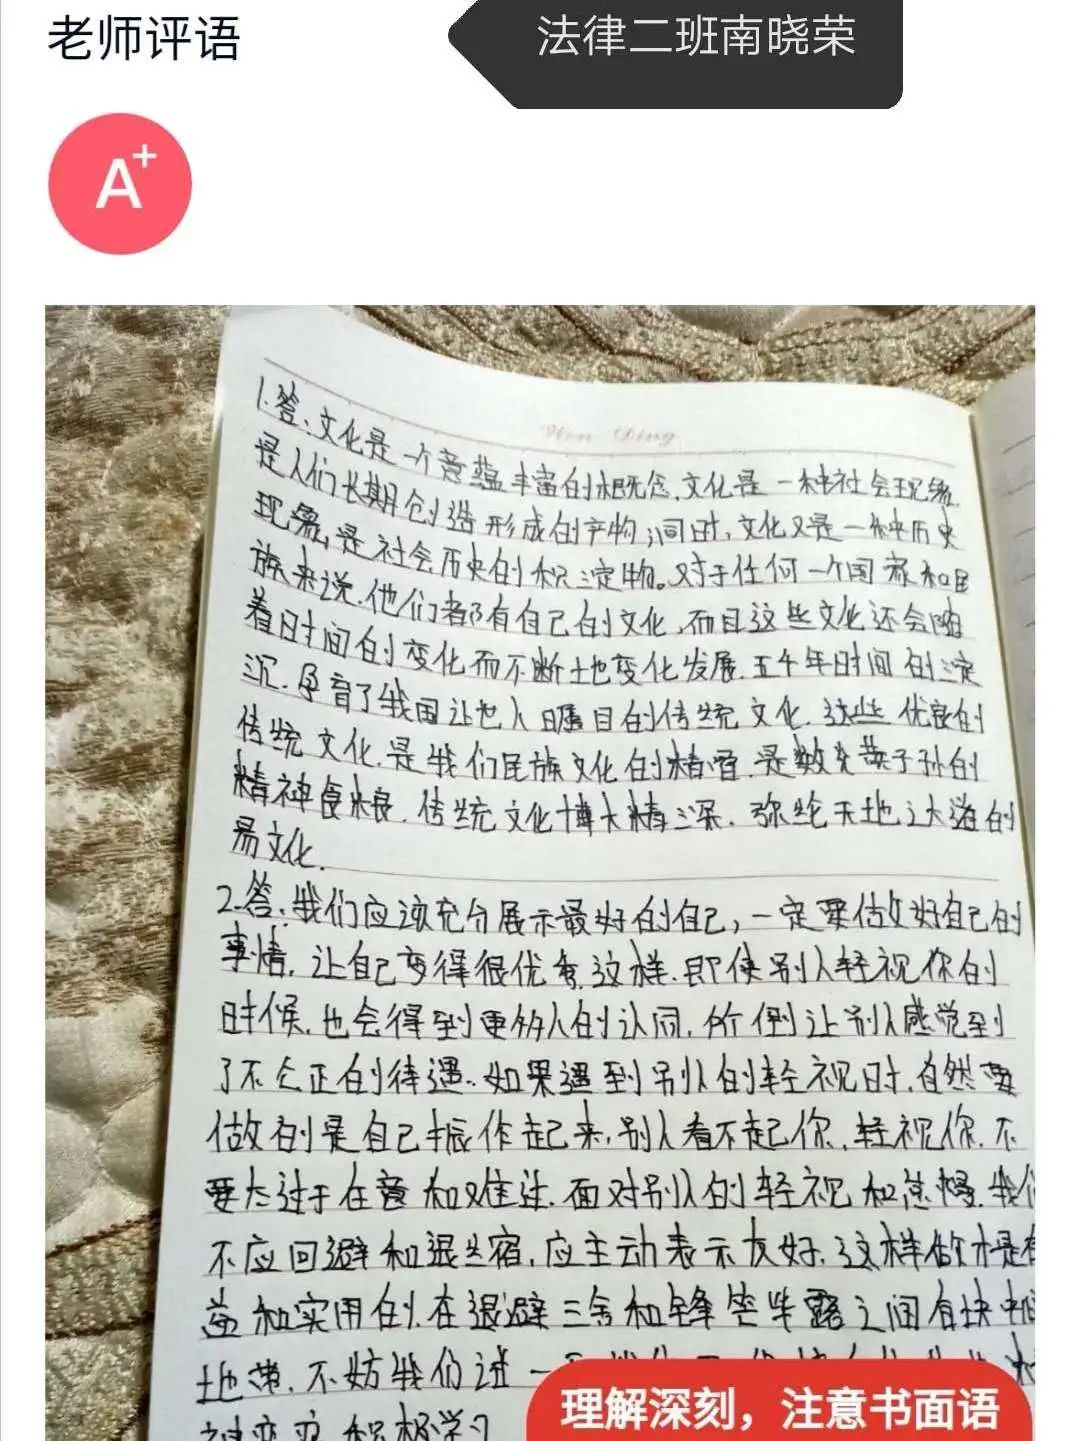 老师评语
法律二班南晓荣
A+
1.答:文化是一个意蕴丰富的概念,文化是一种社会现象,
是人们长期创造形成的产物,同时,文化又是一种历史
现象,是社会历史的积淀物。对于任何一个国家和民
族来说,他们都有自己的文化,而且这些文化还会随
着时间的变化而不断地变化发展.五千年时间的淀
沉.孕育了我国让世人瞩目的传统文化.这些优良的
传统文化.是我们民族文化的精髓.是数炎黄子孙的
精神食粮.传统文化博大精深.弥纶天地之大道的
易文化.
2.答:我们应该充分展示最好的自己,一定要做好自己的
事情,让自己变得很优秀.这样.即使别人轻视你的
时候.也会得到更多人的认同,价倒让别人感觉到
了不公正的待遇..如果遇到别人的轻视时.自然要
做的是自己振作起来,别人看不起你.轻视你.不
要太过于在意和难过.面对别人的轻视和怠慢.我们
不应回避和退缩.应主动表示友好.这样做才是有
益和实用的.在退避三舍和锋芒毕露之间有块中间
地带.不妨我们试一
积极学习
理解深刻，注意书面语